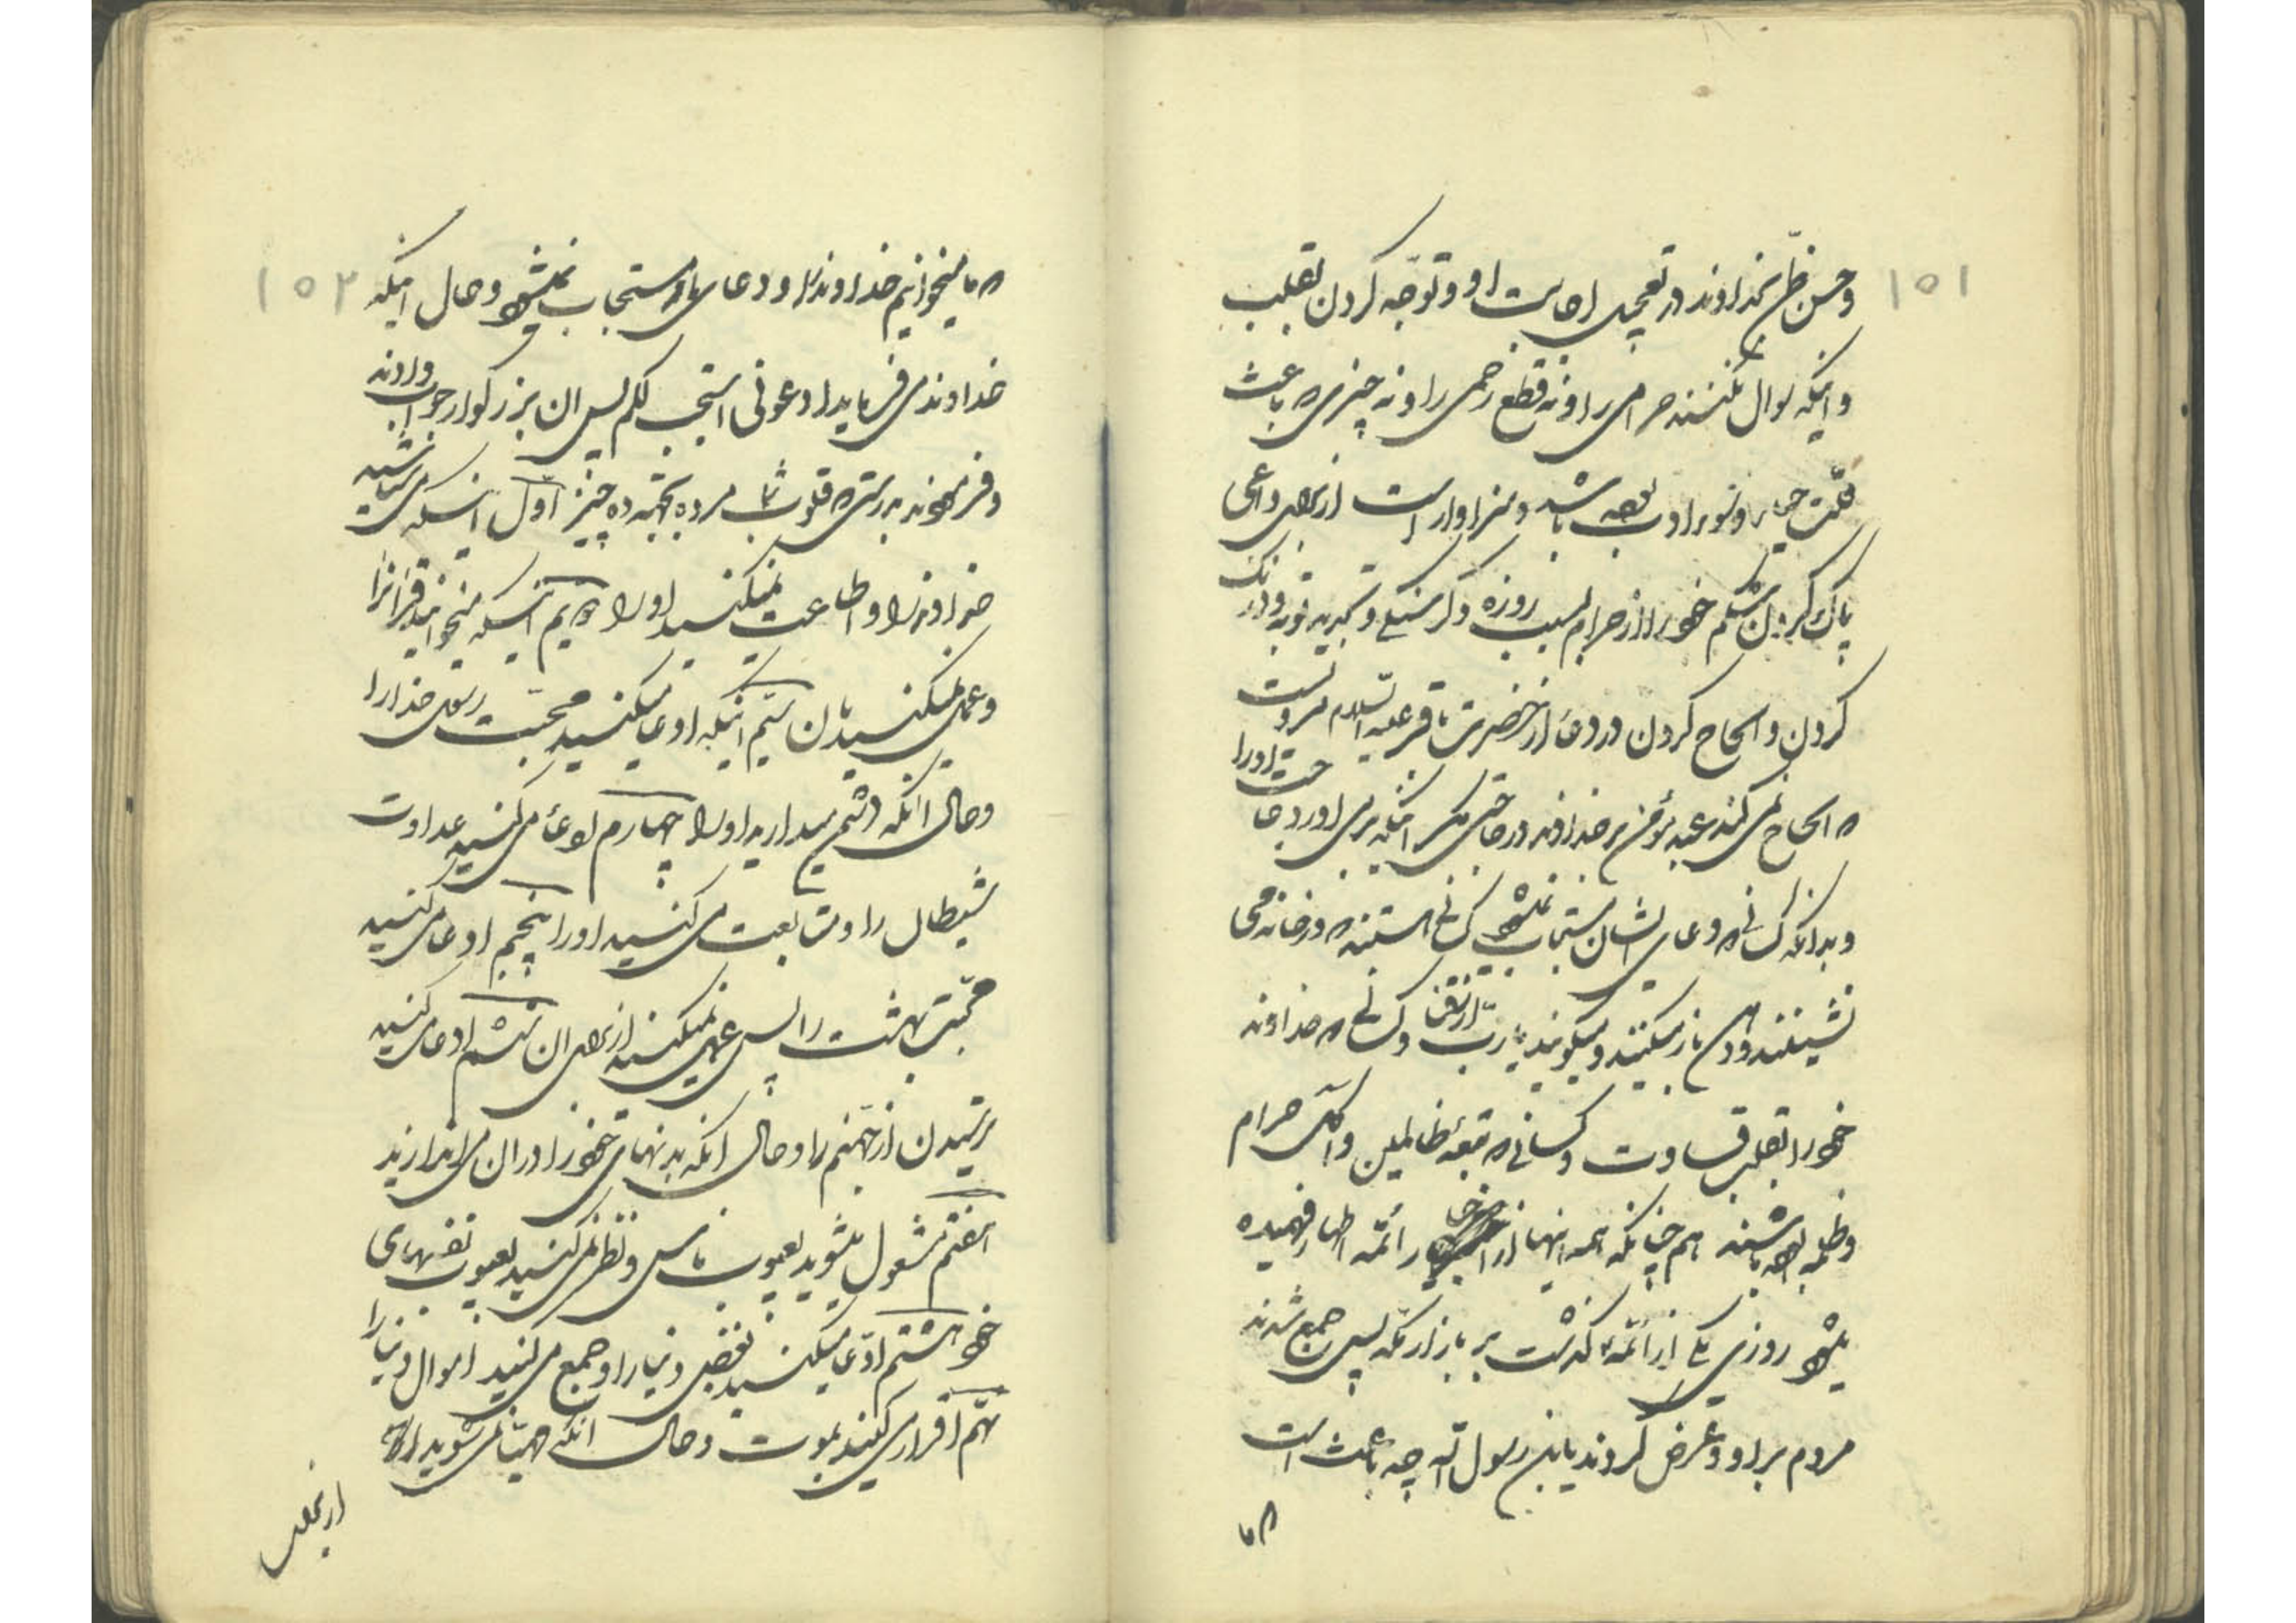 ١٥١
وحسن ظن بخداوند در تعجیل اجابت او و توجه کردن بقلب
و اینکه سوال نکنند حرامی را و نه قطع رحمی را و نه چیزی که باعث
قلت حیا و سوء ادب بوده باشد و سزاوار است از برای داعی
پاک کردن شکم خود را از حرام بسبب روزه و گرسنگی و تجدید توبه و درنک
کردن و الحاح کردن در دعا از حضرت باقر علیه السلام مرویست
که الحاح نمی کند عبد مؤمن بر خداوند در حاجتی مگر اینکه برمی اورد حاجت اورا
و بدانکه کسانیکه دعای ایشان مستجاب نمیشود کسانی هستند که در خانه می
نشینند و دهن باز میکنند و میگویند یا رب ارزقنی و کسانیکه خداوند
خود را بقلب قساوت و کسانیکه تبعه ظالمین و آکل حرام
و ظلمه بوده باشند هم چنانکه همه اینها از اخبار ائمه اطهار فهمیده
میشود روزی یکی از ائمه گذشت بر بازار مکه پس جمع شدند
مردم بر او و عرض کردند یابن رسول الله چه باعث است
که ما
١٥٢
که ما میخوانیم خداوند را و دعای ما مستجاب نمیشود و حال اینکه
خداوند می فرماید ادعونی استجب لکم پس ان بزرگوار جواب دادند
و فرمودند بدرستیکه قلوب شما مرده بجهة ده چیز اول اینکه می شناسید
خداوند را و اطاعت نمیکنید او را دویم اینکه میخوانید قران را
و عمل نمیکنید بان سیم اینکه ادعا میکنید محبت رسول خدا را
و حال آنکه دشمن میدارید اولاد او را چهارم ادعا می کنید عداوت
شیطان را و متابعت می کنید او را پنجم ادعا می کنید
محبت بهشت را پس عمل نمیکنید از برای ان ششم ادعا می کنید
ترسیدن از جهنم را و حال آنکه بدنهای خود را در ان می اندازید
هفتم مشغول میشوید بعیوب ناس و نظر نمی کنید بعیوب نفسهای
خود هشتم ادعا میکنید بغض دنیا را و جمع می کنید اموال دنیا را
نهم اقرار می کنید بموت و حال آنکه مهیا نمی شوید از برای